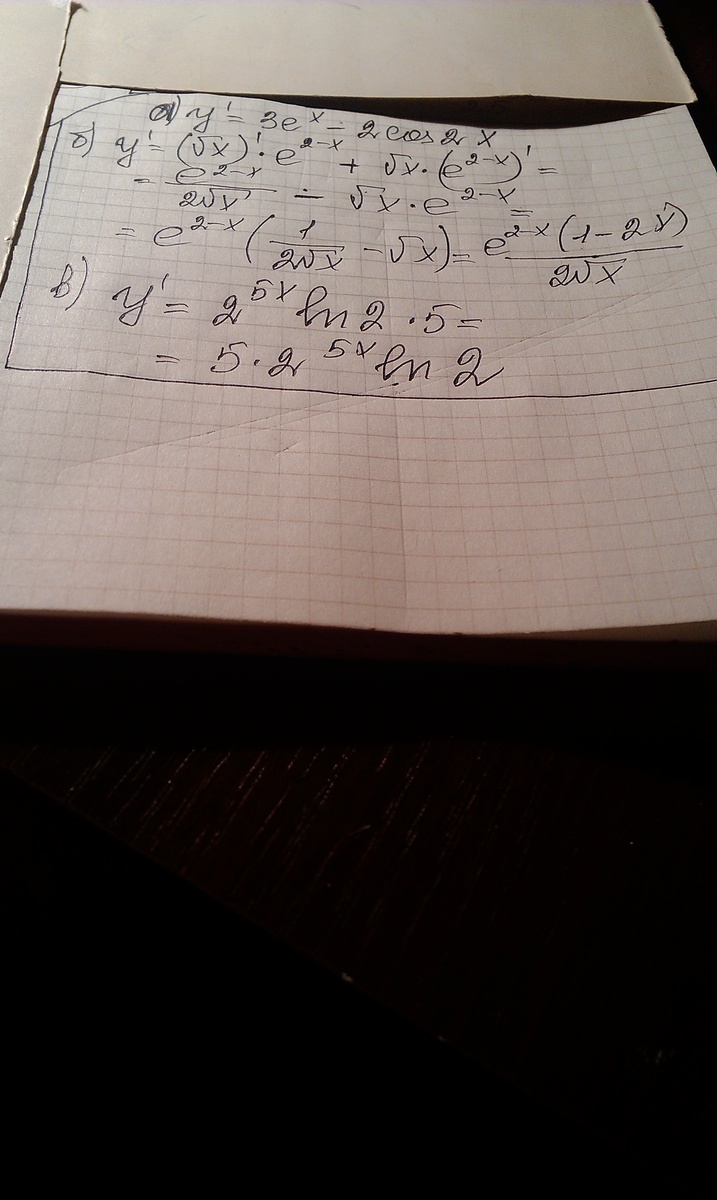 а) y' = 3e^x - 2cos2x
б) y' = (√x)' · e^{2-x} + √x · (e^{2-x})' =
= e^{2-x}/(2√x) - √x · e^{2-x} =
= e^{2-x} (1/(2√x) - √x) = e^{2-x}(1-2x)/(2√x)
в) y' = 2^{5x} ln 2 · 5 =
= 5 · 2^{5x} ln 2